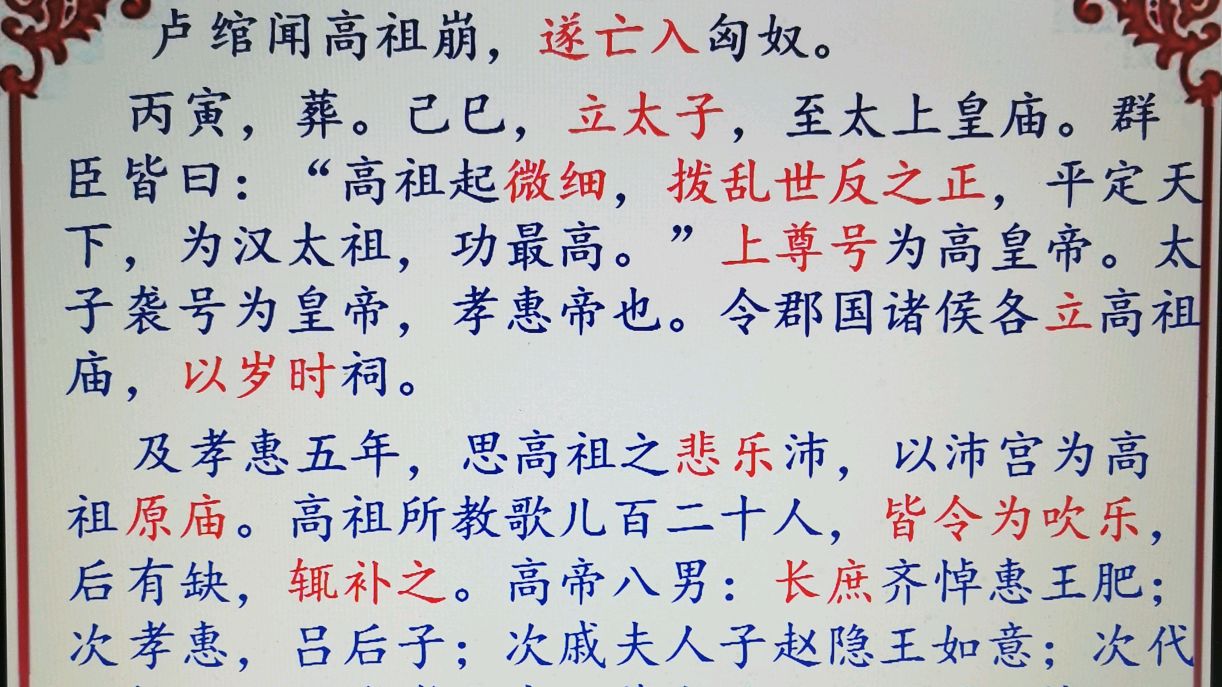 卢绾闻高祖崩，遂亡入匈奴。
丙寅，葬。己巳，立太子，至太上皇庙。群
臣皆曰：“高祖起微细，拨乱世反之正，平定天
下，为汉太祖，功最高。”上尊号为高皇帝。太
子袭号为皇帝，孝惠帝也。令郡国诸侯各立高祖
庙，以岁时祠。
及孝惠五年，思高祖之悲乐沛，以沛宫为高
祖原庙。高祖所教歌儿百二十人，皆令为吹乐，
后有缺，辄补之。高帝八男：长庶齐悼惠王肥；
次孝惠，吕后子；次戚夫人子赵隐王如意；次代